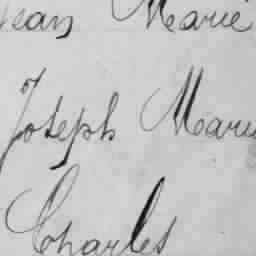 Jean Marie
Joseph Marie
Charles